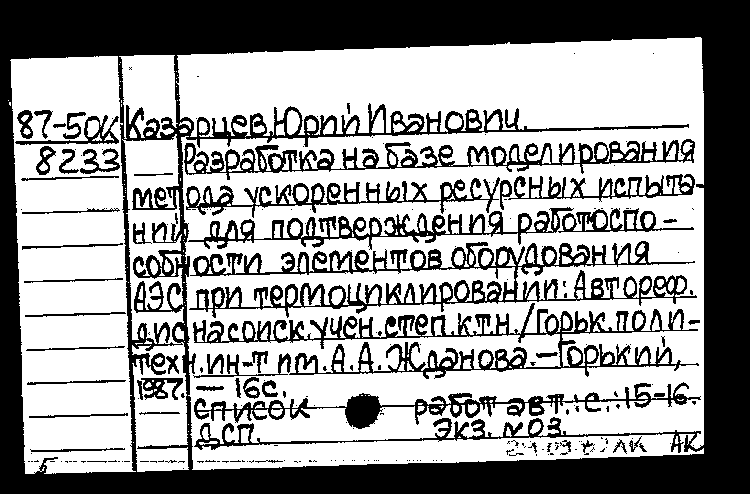 87-50К Казарцев, Юрий Иванович.
8233 Разработка на базе моделирования
метода ускоренных ресурсных испыта-
ний для подтверждения работоспо-
собности элементов оборудования
АЭС при термоциклировании: Автореф.
дис на соиск. учен. степ. к.т.н. / Горьк. поли-
техн. ин-т им. А.А. Жданова. – Горький,
1987. — 16с.
Список работ авт.: с.: 15-16.
ДСП. Экз. №03.
АК
5